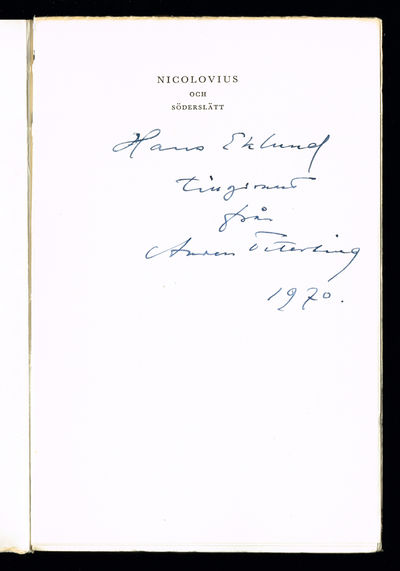 NICOLOVIUS
OCH
SÖDERSLÄTT
Hans Eklund
tillägnad
från
Anders Österling
1970.